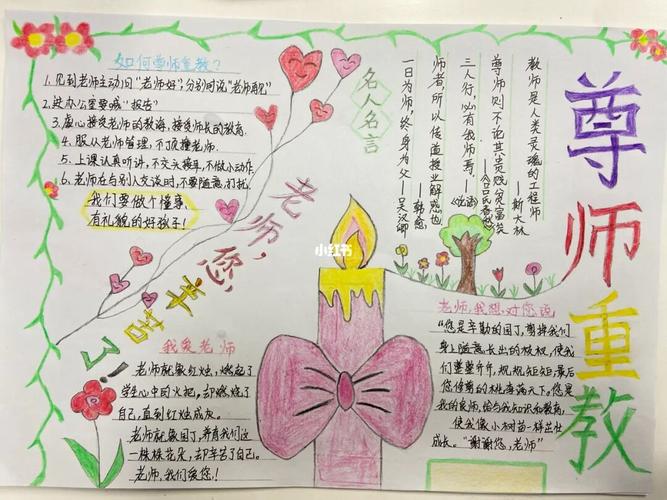 如何尊师重教?
1.见到老师主动问"老师好";分别时说"老师再见"
2.进办公室要喊"报告"
3.虚心接受老师的教诲,接受师长的教育
4.服从老师管理,不顶撞老师.
5.上课认真听讲,不交头接耳,不做小动作
6.老师在与别人交谈时,不要随意打扰
我们要做个懂事
有礼貌的好孩子!
老师,您
辛苦了!
名人名言
教师是人类灵魂的工程师
——斯大林
尊师则不论其贵贱贫富矣
——《吕氏春秋》
三人行,必有我师焉.——《论语》
师者,所以传道授业解惑也
——韩愈
一日为师,终身为父——关汉卿
尊师重教
小红书
我爱老师
老师就像红烛,燃起了
学生心中的火把,却燃烧了
自己,直到红烛成灰。
老师就像园丁,养育我们这
一株株花朵,却辛苦了自己。
老师,我们爱您!
老师,我想对您说
"您是辛勤的园丁,剪掉我们
身上随意长出的枝杈,使我
们整整齐齐,规规矩矩,最后
您修剪的桃李满天下。您是
我的良师,给与我知识和教育,
使我像小树苗一样茁壮
成长。"谢谢您,老师"